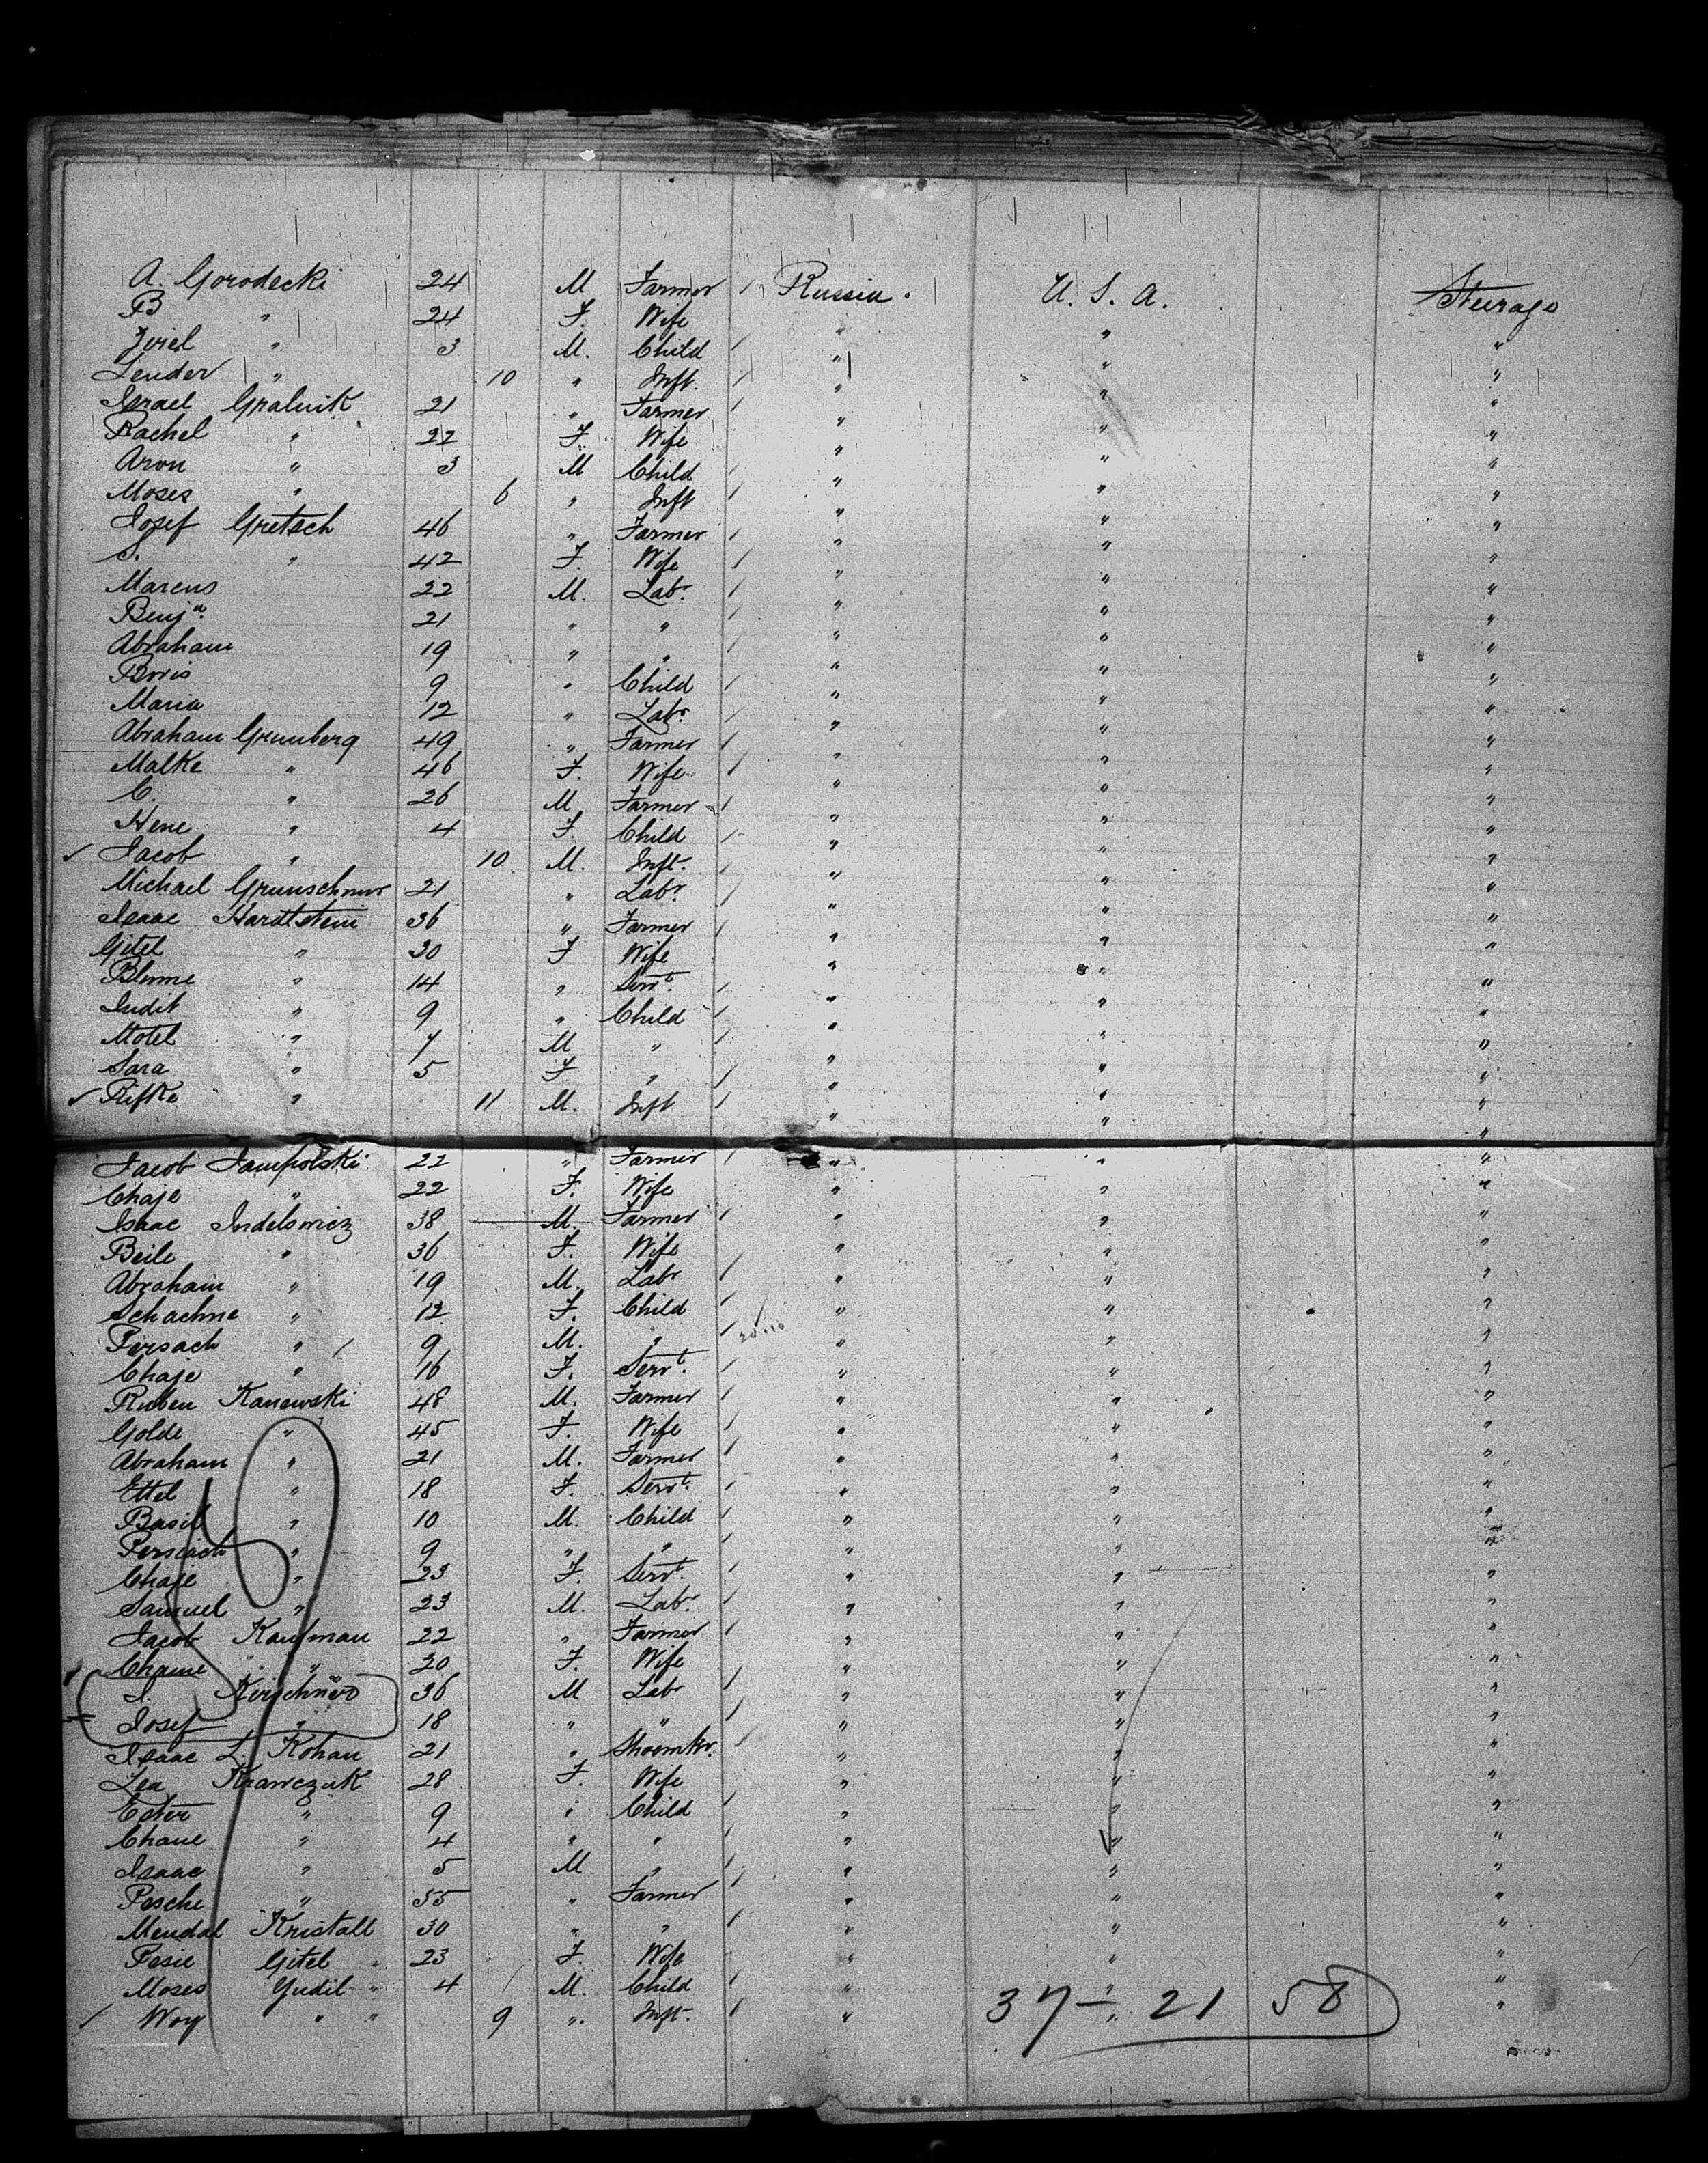 A. Gorodecki 24 M Farmer / Russia. U. S. A. Steerage
B " 24 F. Wife " " "
Jeriel " 3 M. Child / " " "
Lender " 10 " Inft. / " " "
Israel Gralnik 21 " Farmer / " " "
Rachel " 22 F. Wife " " "
Aron " 3 M Child / " " "
Moses " 6 " Inft / " " "
Josef Gretsch 46 " Farmer / " " "
S. " 42 F. Wife / " " "
Marcus 22 M. Labr. / " " "
Benjn. 21 " " / " " "
Abraham 19 " " / " " "
Boris 9 " Child / " " "
Maria 12 " Labr. / " " "
Abraham Grunberg 49 " Farmer / " " "
Malke " 46 F. Wife / " " "
C. " 26 M Farmer / " " "
Hene " 4 F. Child / " " "
✓ Jacob " 10 M. Inft. / " " "
Michael Grunschnur 21 " Labr. / " " "
Isaac Hardtstein 36 " Farmer / " " "
Gitel " 30 F Wife " " "
Blume " 14 " Servt. / " " "
Judit " 9 " Child / " " "
Motel " 7 M " / " " "
Sara " 5 F " / " " "
✓ Rifke " 11 M. Inft / " " "
Jacob Jampolski 22 " Farmer / " " "
Chaje " 22 F. Wife " " "
Isaac Judelowicz 38 M. Farmer / " " "
Beile " 36 F. Wife " " "
Abraham " 19 M. Labr / " " "
Schachne " 12 F. Child / " " "
Persach " / 9 M. " / " " "
Chaje " 16 F. Servt. / " " "
Ruben Kanewski 48 M. Farmer / " " "
Golde " 45 F. Wife / " " "
Abraham " 21 M. Farmer / " " "
Ettel " 18 F. Servt. / " " "
Basil " 10 M. Child / " " "
Persach " 9 " " / " " "
Chaje " 23 F. Servt. / " " "
Samuel " 23 M. Labr. / " " "
Jacob Kaufman 22 " Farmer / " " "
Chame " 20 F. Wife " " "
Kirschner 36 M Labr / " " "
Josef " 18 " " / " " "
Isaac L. Kohan 21 " Shoemkr. / " " "
Lea Krawczuk 28 F. Wife " " "
Ester " 9 " Child / " " "
Chane " 4 " " / " " "
Isaac " 5 M " / " " "
Pesche " 55 " Farmer " " "
Mendel Kristall 30 " " / " " "
Pesie Gitel " 23 F. Wife " " "
Moses Judil " 4 M. Child / " " "
/ Woy " " 9 " Inft. / " " "
37 – 21 58